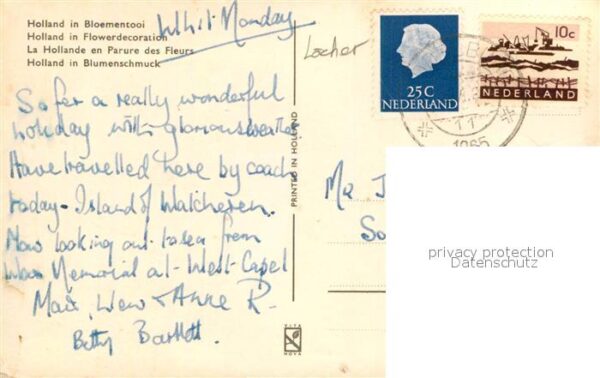 Holland in Bloementooi
Holland in Flowerdecoration
La Hollande en Parure des Fleurs
Holland in Blumenschmuck
Whit Monday
So far a really wonderful
holiday with glorious weather
Have travelled here by coach
today - Island of Walcheren.
Now looking out to sea from
War Memorial at West Capel
Max, Wew & Anne R-
Betty Bartlett.
PRINTED IN HOLLAND
ELTA
NOVA
Locher
25C
NEDERLAND
10c
NEDERLAND
11
1965
Mr J
So
privacy protection
Datenschutz